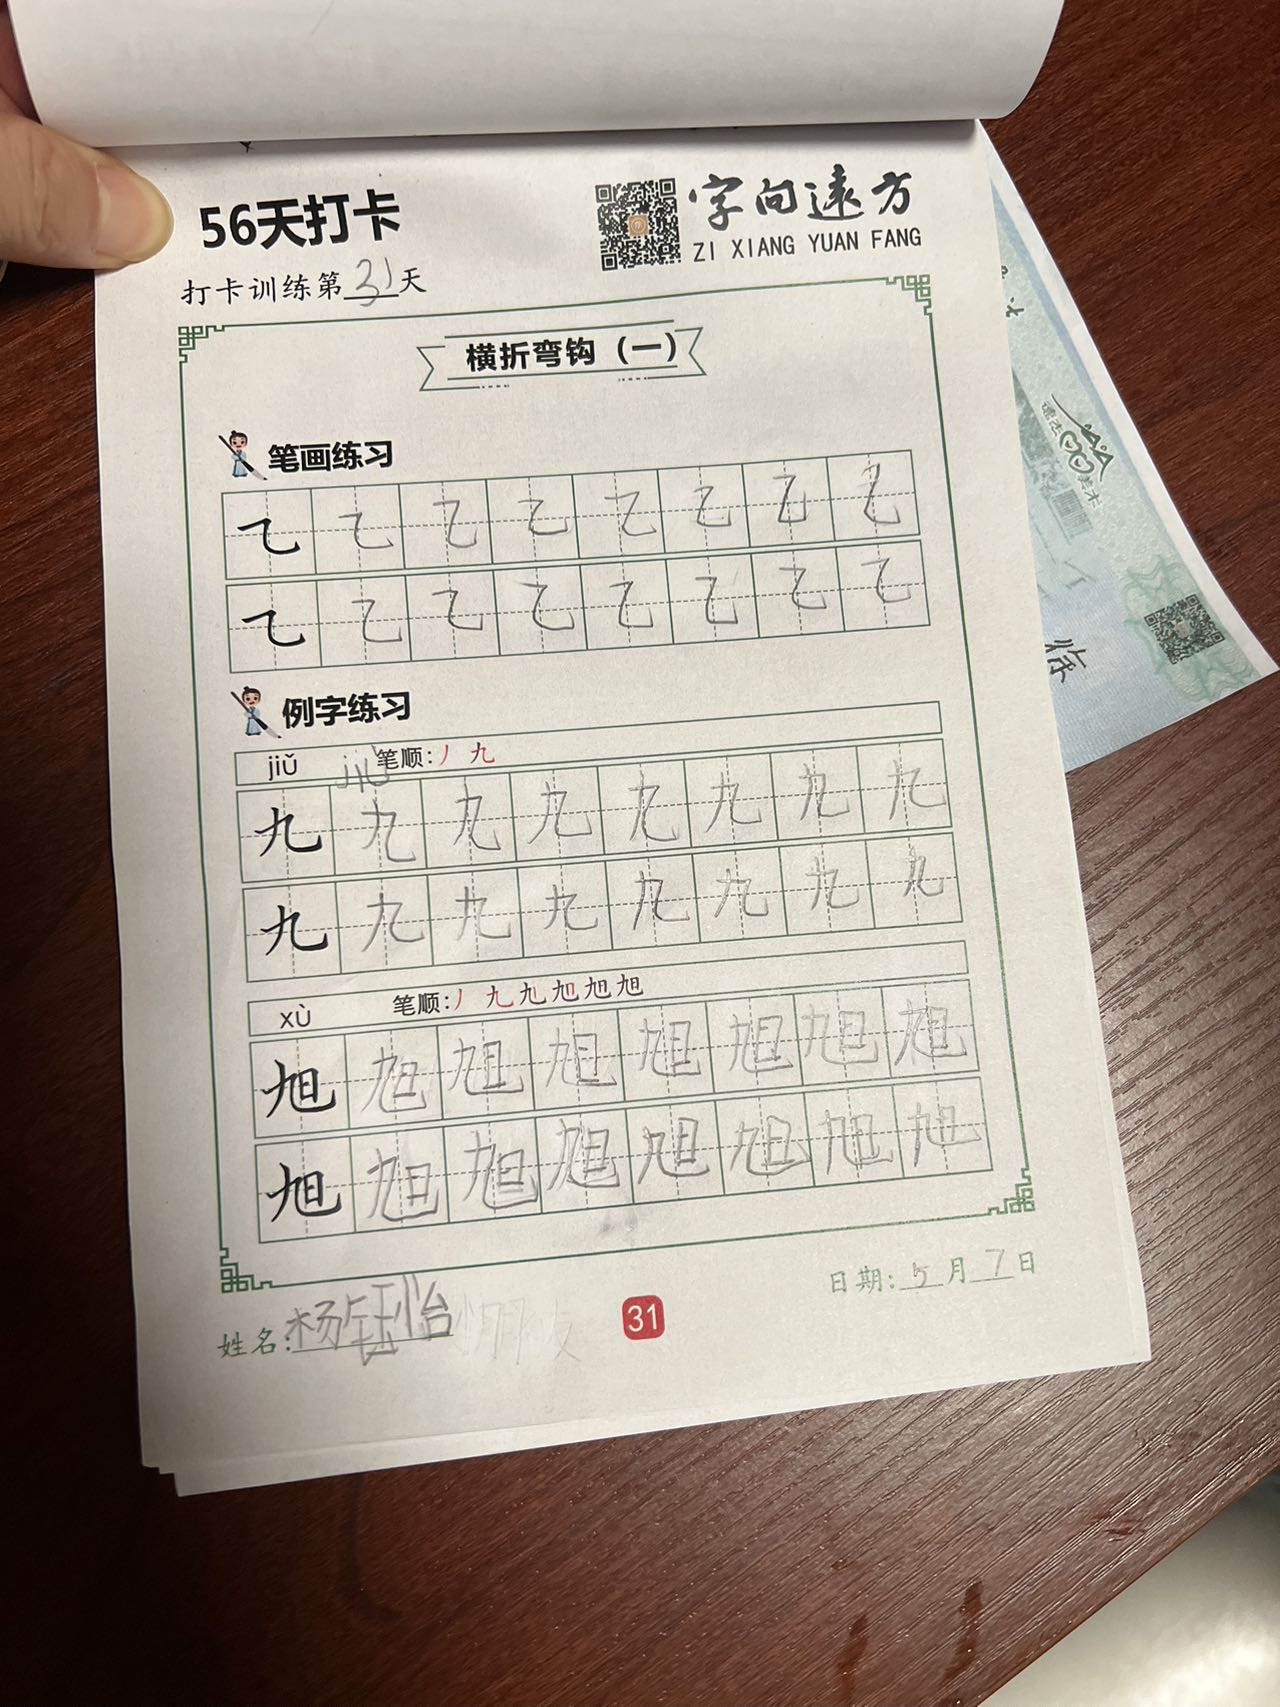 56天打卡
字向远方
ZI XIANG YUAN FANG
打卡训练第31天
横折弯钩（一）
笔画练习
㇈ ㇈ ㇈ ㇈ ㇈ ㇈ ㇈ ㇈
㇈ ㇈ ㇈ ㇈ ㇈ ㇈ ㇈ ㇈
例字练习
jiǔ jiǔ 笔顺:丿 九
九 九 九 九 九 九 九 九
九 九 九 九 九 九 九 九
xù 笔顺:丿 九
旭 旭 旭 旭 旭 旭 旭 旭
旭 旭 旭 旭 旭 旭 旭 旭
日期:5月7日
姓名:杨钰怡 小朋友
31
徐